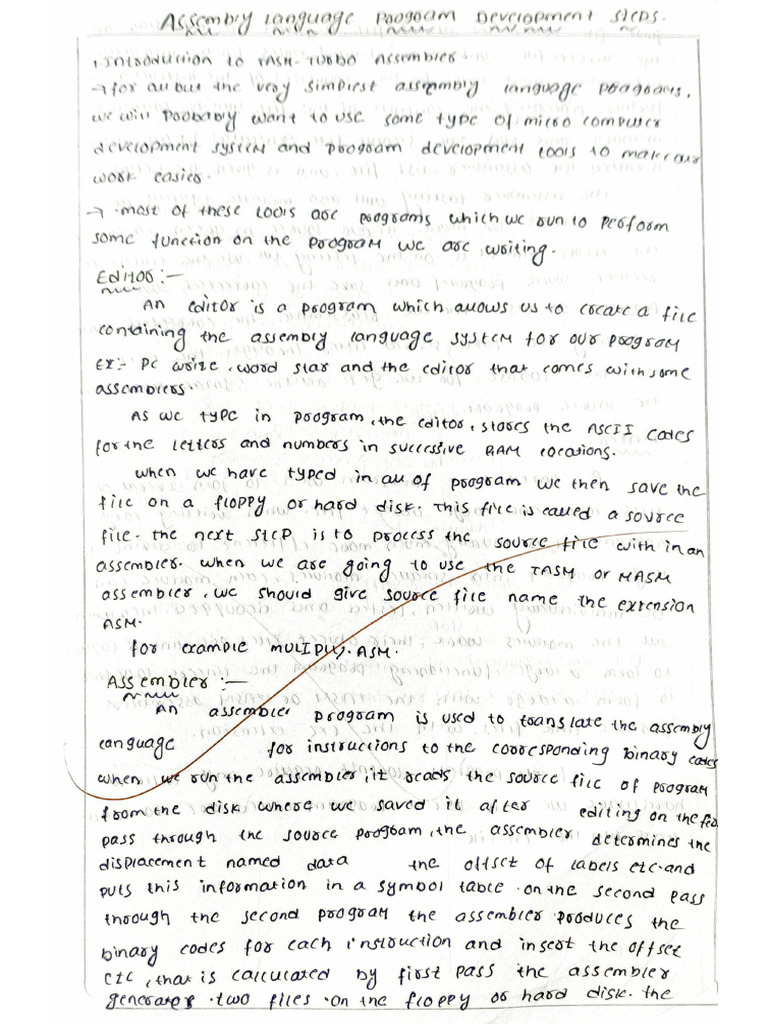 Assembly Language Program Development Steps.
1. Introduction to TASM-Turbo Assembler
→ for all but the very simplest assembly language programs,
we will probably want to use some type of micro computer
development system and program development tools to make our
work easier.
→ most of these tools are programs which we run to perform
some function on the program we are writing.
Editor :-
An editor is a program which allows us to create a file
containing the assembly language system for our program
Ex:- PC write, word star and the editor that comes with some
assemblers.
As we type in program, the editor, stores the ASCII codes
for the letters and numbers in successive RAM locations.
when we have typed in all of program we then save the
file on a floppy or hard disk. This file is called a source
file. the next step is to process the source file with in an
assembler. when we are going to use the TASM or MASM
assembler, we should give source file name the extension
ASM.
for example MULIPLY.ASM.
Assembler :-
An assembler program is used to translate the assembly
language for instructions to the corresponding binary codes
when we run the assembler, it reads the source file of program
from the disk where we saved it after editing on the
pass through the source program, the assembler determines the
displacement named data the offset of labels etc. and
puts this information in a symbol table. on the second pass
through the second program the assembler produces the
binary codes for each instruction and insert the offset
etc, that is calculated by first pass the assembler
generates two files on the floppy or hard disk. the